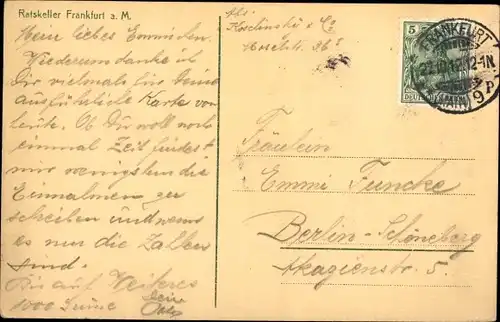 Ratskeller Frankfurt a. M.
Mein liebes Emmichen
Wiederum danke ich
Dir vielmals für Deine
ausführliche Karte von
heute. Ob Du wohl noch
einmal Zeit findest
mir wenigstens die
Einnahmen zu
schreiben und wenn
es nur die Zahlen
sind.
Bis auf Weiteres
1000 Dein
5
FRANKFURT
12-1N
(MAIN)
9
Fräulein
Emmi Funcke
Berlin-Schöneberg
Akazienstr. 5.